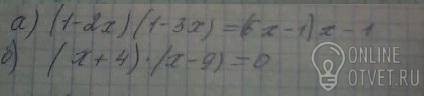 а) (1-2x)(1-3x)=(6x-1)x-1
б) (x+4)·(x-9)=0
ONLINE
OTVET.RU